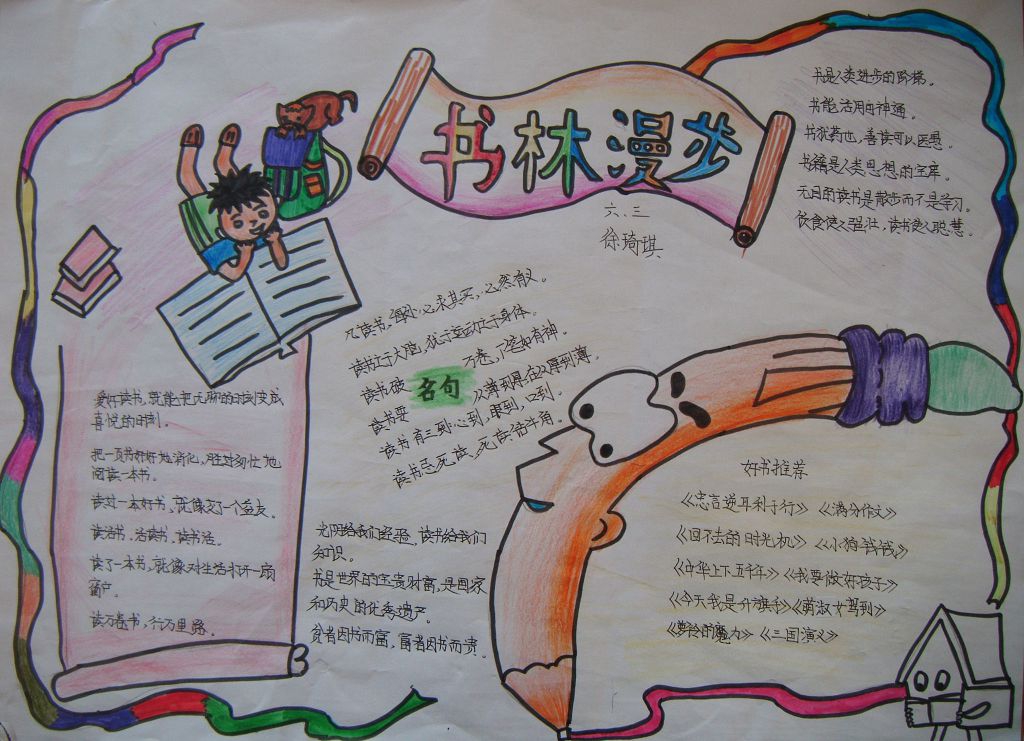 书林漫步
六、三
徐琦琪
书是人类进步的阶梯。
书能活用由神通。
书犹药也，善读可以医愚。
书籍是人类思想的宝库。
无目的读书是散步而不是学习。
饮食使人强壮，读书使人聪慧。
凡读书，必求其实，必然有义。
读书之于大脑，犹于运动之于身体。
读书破万卷，下笔如有神
读书要从薄到厚，在从厚到薄。
名句
读书有三到，心到，眼到，口到。
读书忌死读，死读钻牛角。
爱好读书，就能把无聊的时刻变成
喜悦的时刻。
把一页书好好地消化，胜过匆忙地
阅读一本书。
读过一本好书，就像交了一个益友。
读活书，活读书，读书活。
读了一本书，就像对生活打开一扇
窗户。
读万卷书，行万里路。
光阴给我们经验，读书给我们
知识。
书是世界的宝贵财富，是国家
和历史的优秀遗产。
贫者因书而富，富者因书而贵。
好书推荐
《忠言逆耳利于行》《满分作文》
《回不去的时光机》《小狗钱钱》
《中华上下五千年》《我要做好孩子》
《今天我是升旗手》《萌淑女驾到》
的魔力》《三国演义》